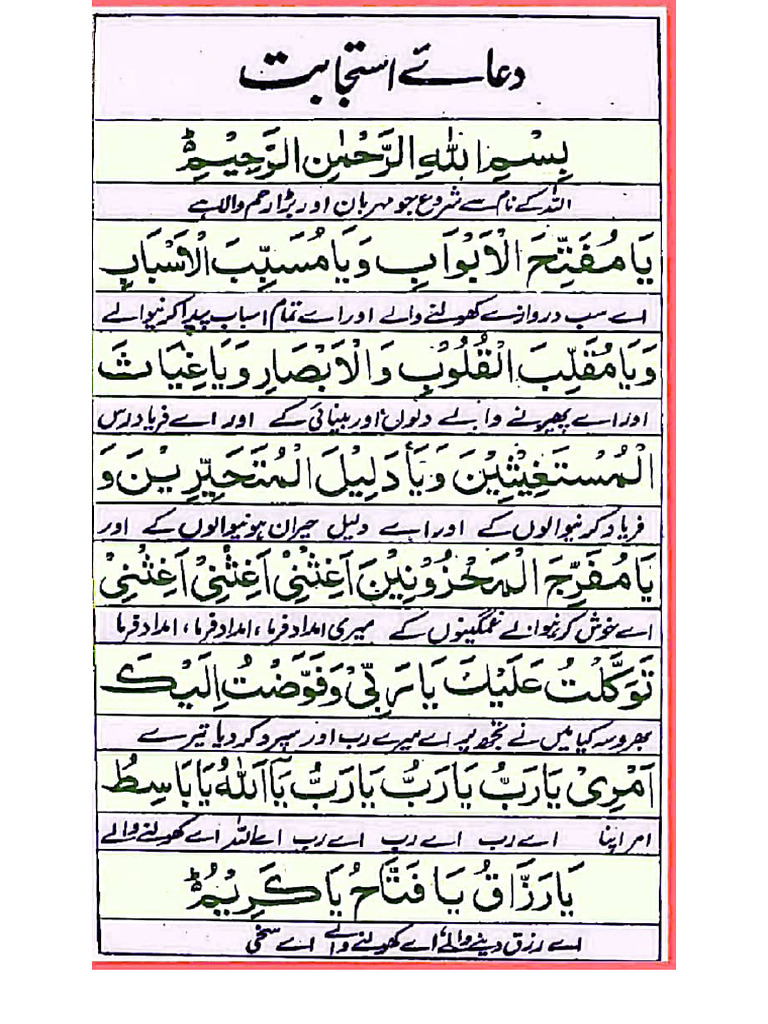 دعائے استجابت
بِسْمِ اللهِ الرَّحْمٰنِ الرَّحِيْمِ
اللہ کے نام سے شروع جو مہربان اور بڑا رحم والا ہے
يَا مُفَتِّحَ الْاَبْوَابِ وَيَا مُسَبِّبَ الْاَسْبَابِ
اے سب دروازے کھولنے والے اور اے تمام اسباب پیدا کرنیوالے
وَيَا مُقَلِّبَ الْقُلُوْبِ وَالْاَبْصَارِ وَيَا غِيَاثَ
اور اے پھیرنے والے دلوں اور بینائی کے اور اے فریادرس
الْمُسْتَغِيْثِيْنَ وَيَا دَلِيْلَ الْمُتَحَيِّرِيْنَ وَ
فریاد کرنیوالوں کے اور اے دلیل حیران ہونیوالوں کے اور
يَا مُفَرِّجَ الْمَحْزُوْنِيْنَ اَغِثْنِيْ اَغِثْنِيْ اَغِثْنِيْ
اے خوش کرنیوالے غمگینوں کے میری امداد فرما، امداد فرما، امداد فرما
تَوَكَّلْتُ عَلَيْكَ يَا رَبِّيْ وَفَوَّضْتُ اِلَيْكَ
بھروسہ کیا میں نے تجھ پر اے میرے رب اور سپرد کر دیا تیرے
اَمْرِيْ يَا رَبُّ يَا رَبُّ يَا رَبُّ يَآ اَللهُ يَا بَاسِطُ
امر اپنا اے رب اے رب اے رب اے اللہ اے کھولنے والے
يَا رَزَّاقُ يَا فَتَّاحُ يَا كَرِيْمُ
اے رزق دینے والے، اے کھولنے والے اے سخی